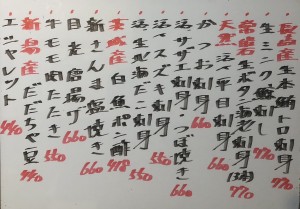 長崎産生本鮪トロ刺身
生ミンク鯨刺し 770
常磐産生ボタン海老刺身 770
天然活平目刺身 1本 770
かつお刺身 660
活サザエ刺身・つぼ焼き 660
活〆スズキ刺身 550
活生北海だこ刺身 660
茨城産白魚ポン酢 418
新さんま塩焼き
目光唐揚げ 660
牛モモ肉たたき 550
新潟産だだちゃ豆 440
エシャレット 440